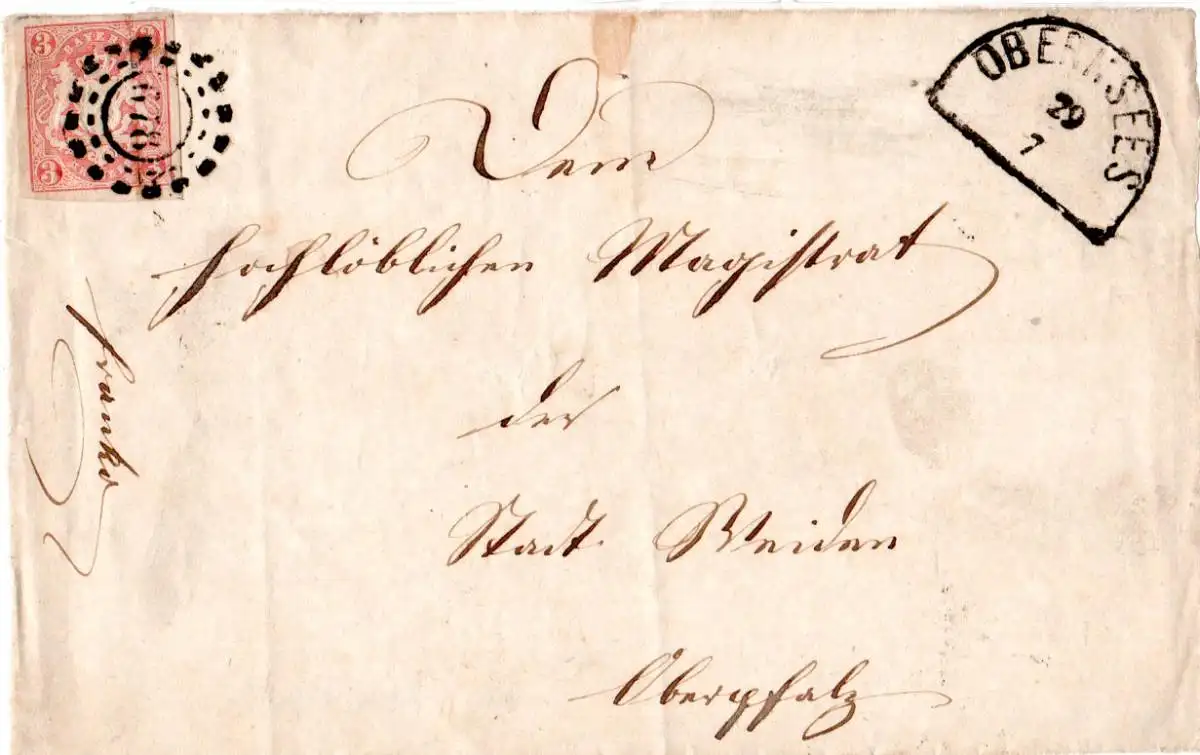 3 BAYERN 3
3
678
OBERNSEES
29
7
Dem
hochlöblichen Magistrat
der
Stadt Weiden
Oberpfalz
franko